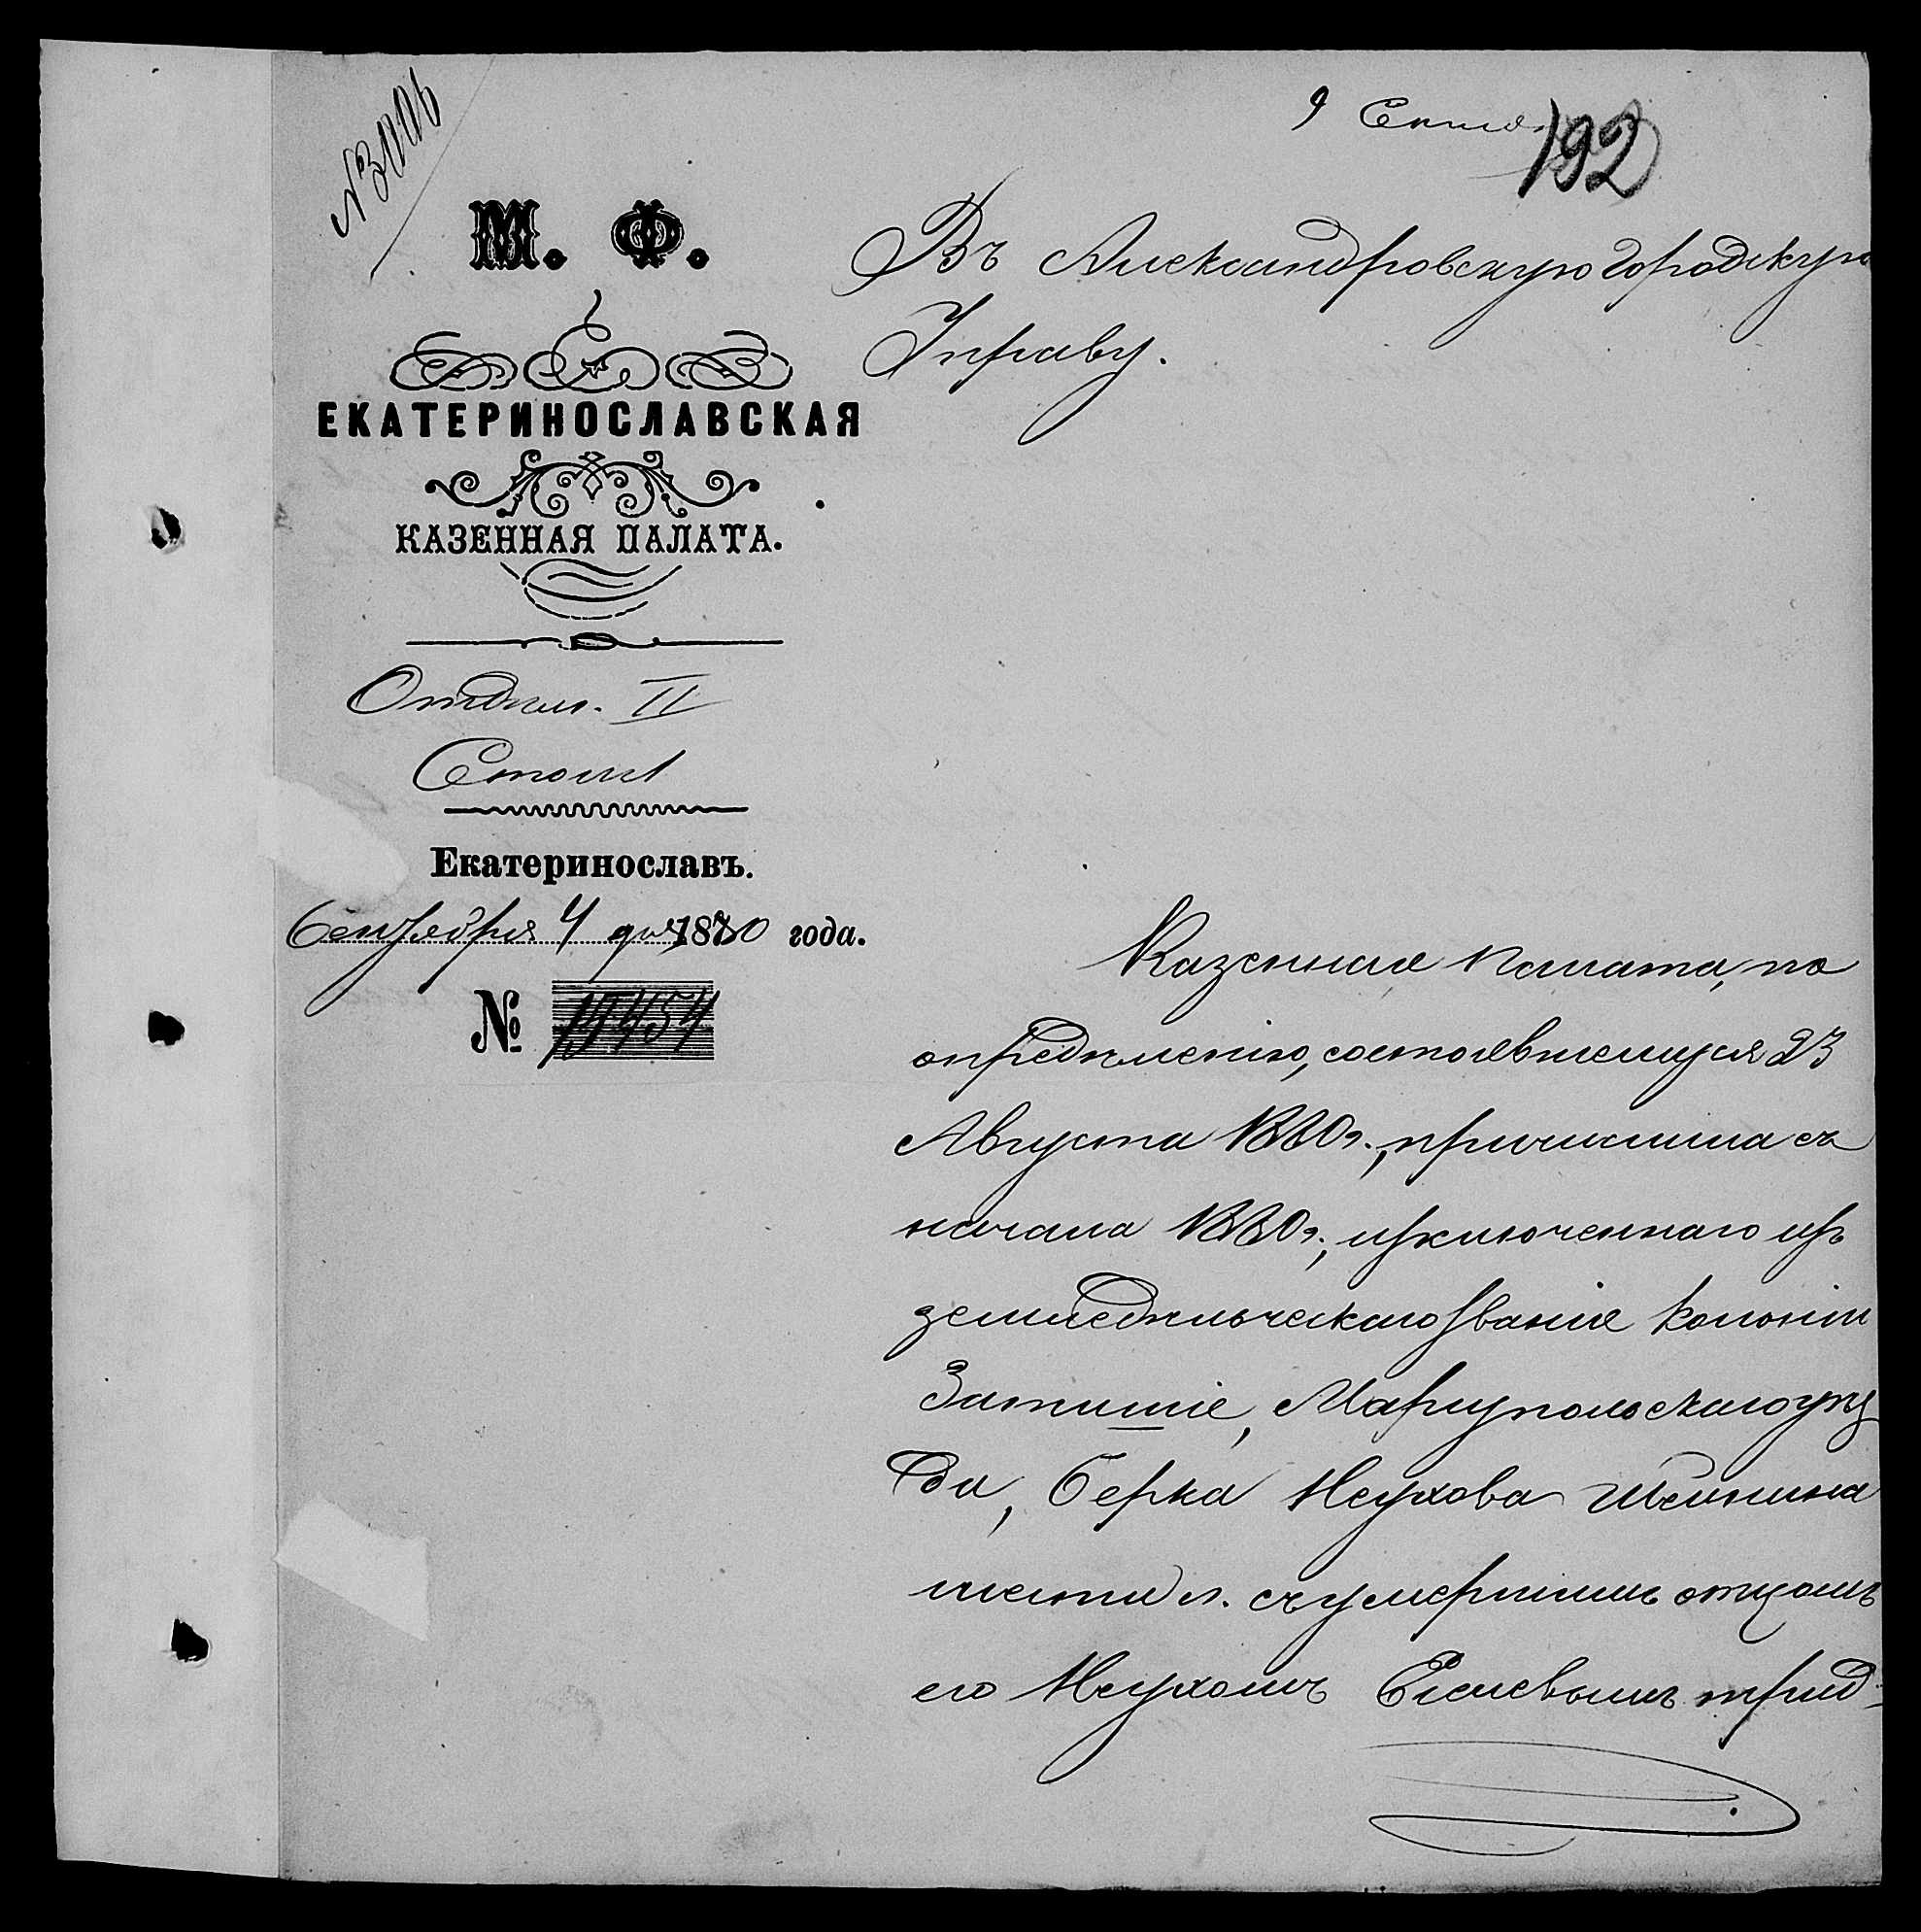 9 Сентя.
192
М. Ф.
ЕКАТЕРИНОСЛАВСКАЯ
КАЗЕННАЯ ПАЛАТА.
Отдѣл. II
Столъ 1
Екатеринославъ.
Сентября 4 дня 1880 года.
№ 19454
Въ Александровскую Городскую
Управу.
Казенная Палата, по
опредѣленію, состоявшемуся 23
Августа 1880 г., причислила съ
начала 1880 г., исключеннаго изъ
земледѣльческаго званія колоніи
Затишіе, Маріупольскаго уѣз
да, Берка Неухова
шести л. съ умершимъ отцомъ
его Неухомъ трид-